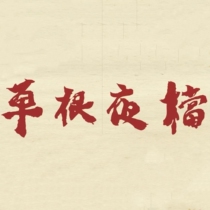 草根夜檔